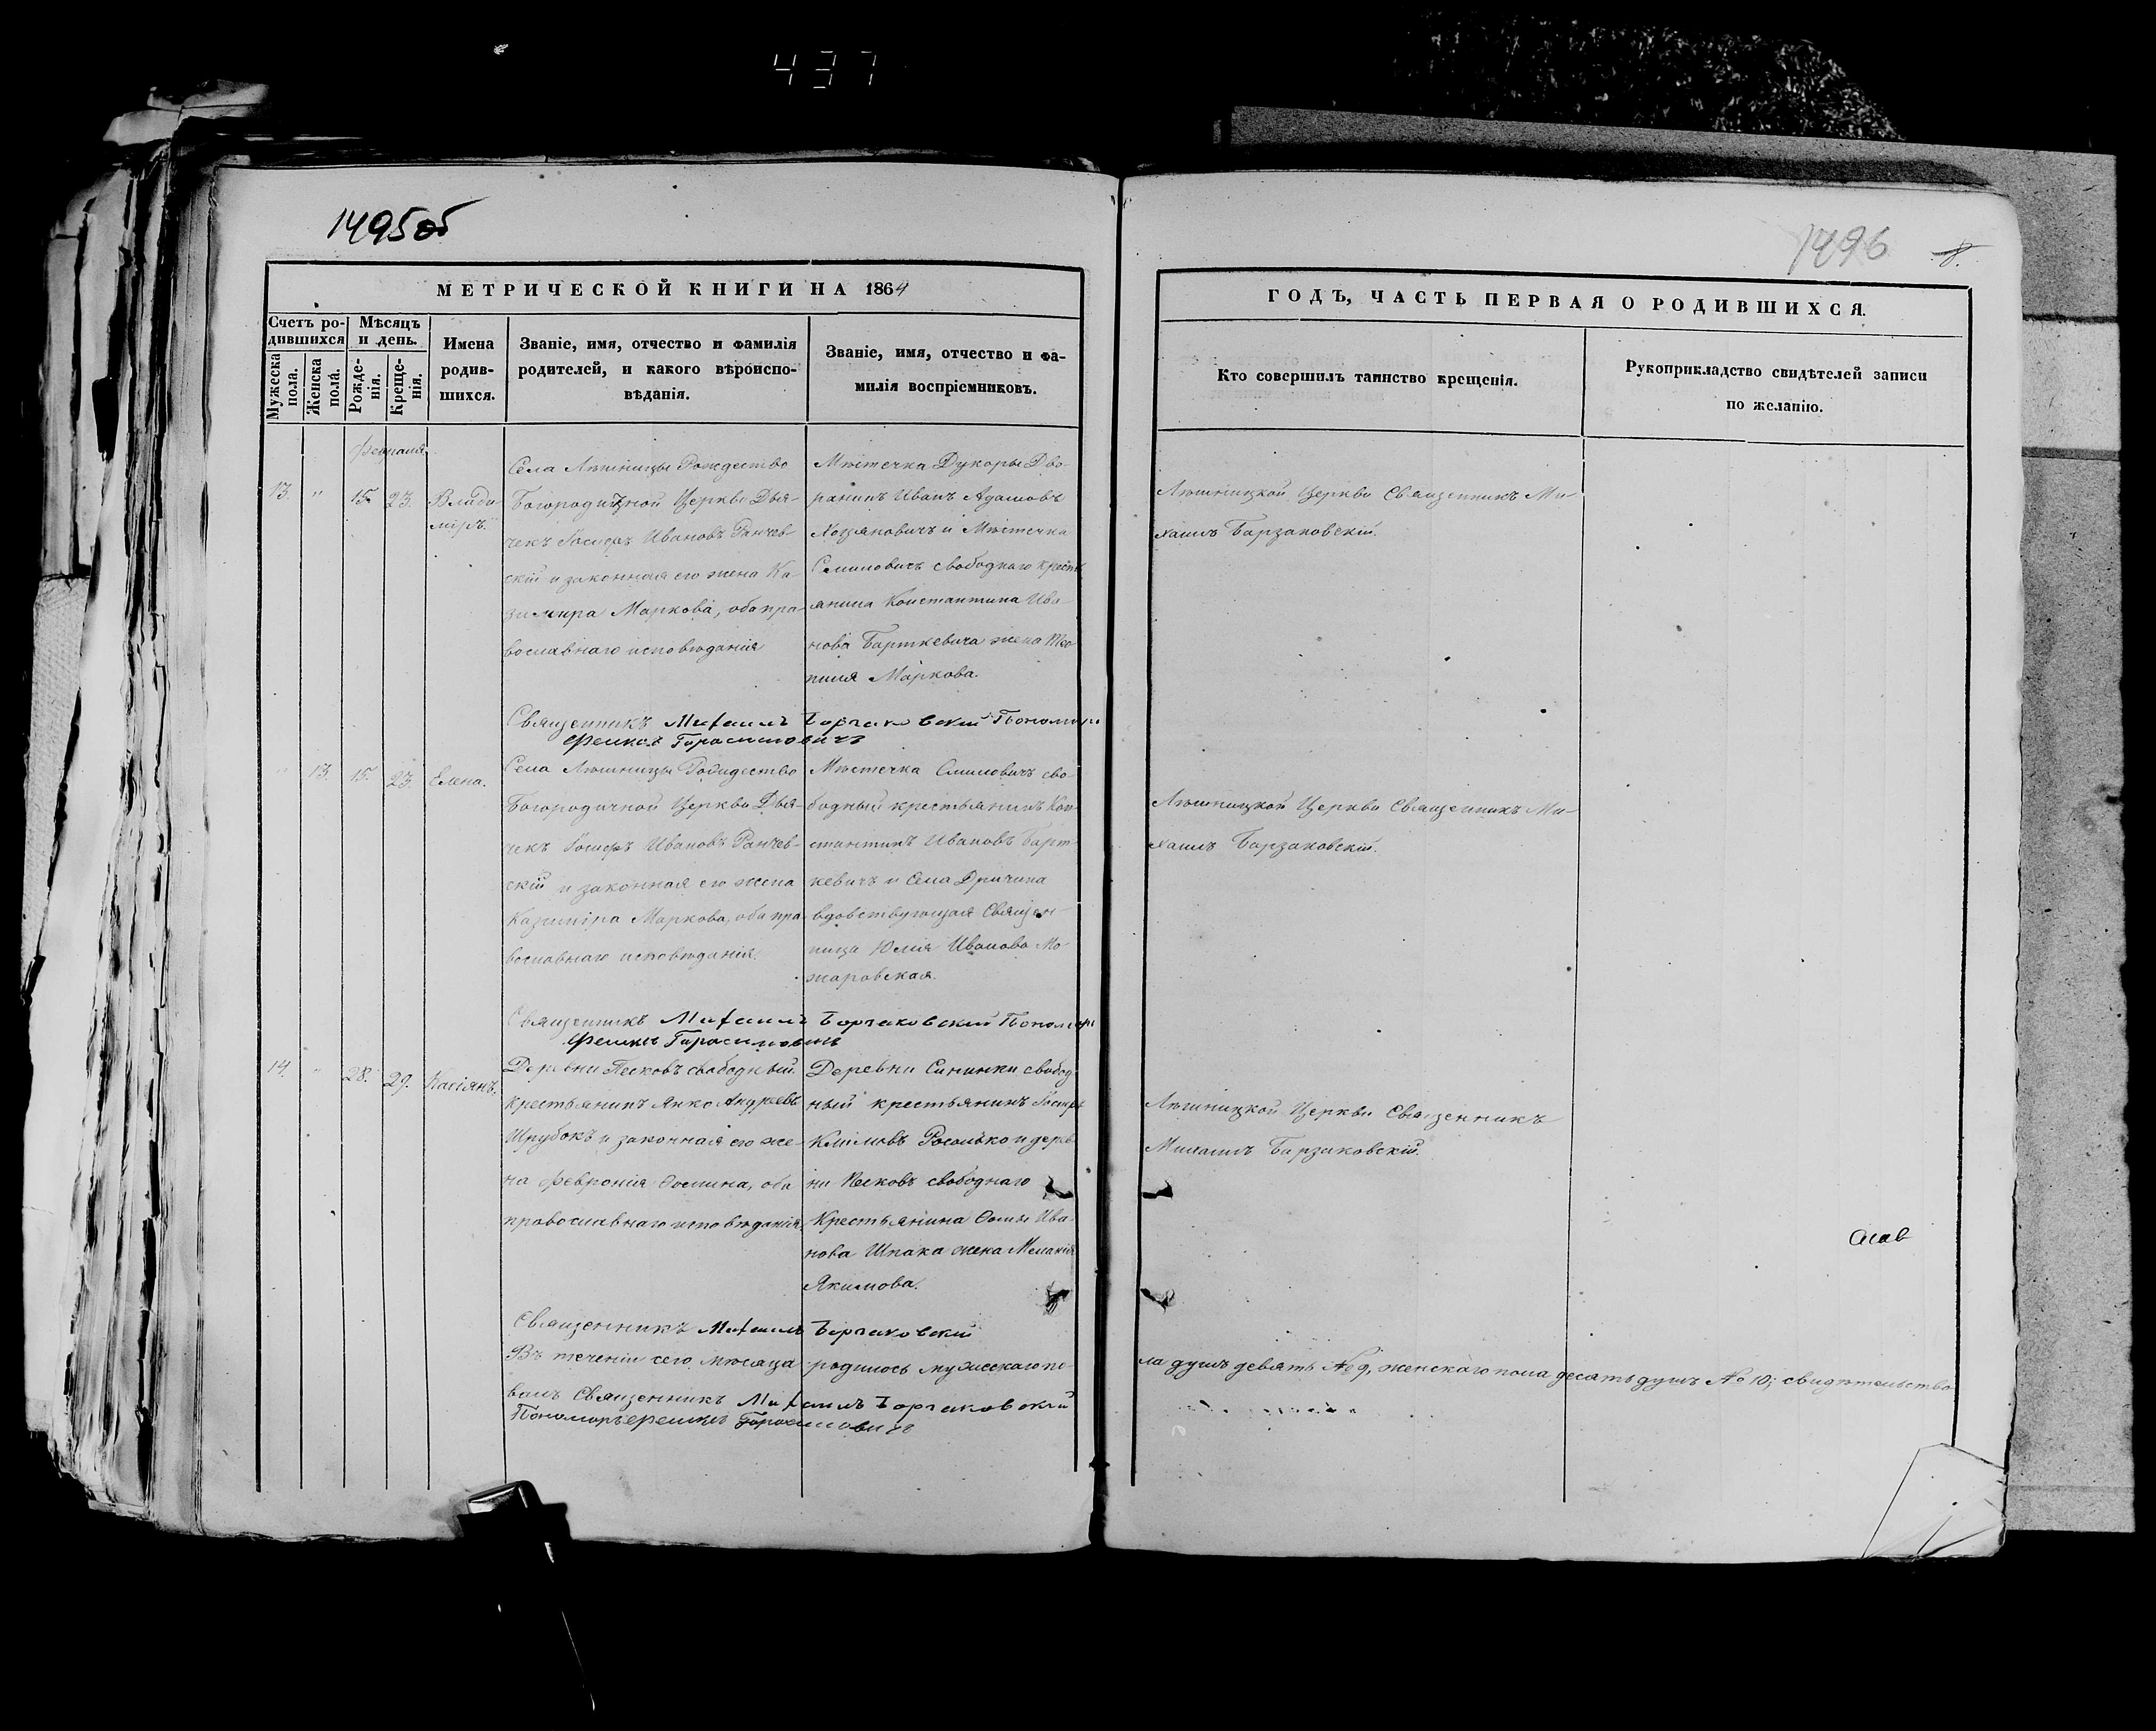 437
1495об
1496
8.
МЕТРИЧЕСКОЙ КНИГИ НА 1864
ГОДЪ, ЧАСТЬ ПЕРВАЯ О РОДИВШИХСЯ.
Счетъ родившихся
Мужеска пола.
Женска пола.
Мѣсяцъ и день.
Рожденія.
Крещенія.
Имена родившихся.
Званіе, имя, отчество и фамилія
родителей, и какого вѣроиспо-
вѣданія.
Званіе, имя, отчество и фа-
милія воспріемниковъ.
Кто совершилъ таинство крещенія.
Рукоприкладство свидѣтелей записи
по желанію.
Февраля
13. " 15. 23. Влади-
міръ.
Села Лѣшницы Рождество
Богородичной Церкви Дья-
чекъ Іосифъ Ивановъ Ранчев-
скій и законная его жена Ка-
зимира Маркова, оба пра-
вославнаго исповѣданія
Мѣстечка Дукоры Дво-
рянинъ Иванъ Адамовъ
и Мѣстечка
Смиловичъ свободнаго кресть
янина Константина Ива
нова Барткевича жена
Маркова.
Лѣшницкой Церкви Священникъ Ми-
хаилъ Барзаковскій.
Священникъ Михаилъ Борзаковский Пономарь
Феликс Горасимовичъ
" 13. 15. 23. Елена.
Села Лѣшницы Рождество
Богородичной Церкви Дья-
чекъ Іосифъ Ивановъ Ранчев-
скій и законная его жена
Казиміра Маркова, оба пра
вославнаго исповѣданія.
Мѣстечка Смиловичъ сво-
бодный крестьянинъ Кон
стантинъ Ивановъ Барт-
кевичъ и Села Дричина
вдовствующая Священ-
ница Юлія Иванова Мо
жаровская.
Лѣшницкой Церкви Священникъ Ми-
хаилъ Барзаковскій.
Священникъ Михаилъ Борзаковский Пономарь
Феликсъ Горасимовичъ
14. " 28. 29. Касіянъ.
Деревни Песковъ свободный
крестьянинъ Янко Андреевъ
Шрубокъ и законная его же-
на Февронія Ѳомина, оба
православнаго исповѣданія.
Деревни Сининки свобод
ный крестьянинъ Іосифъ
Климовъ и дерев
ни Песковъ свободнаго
Крестьянина Ѳомы Ива
нова Шпака жена Меланія
Якимова.
Лѣшницкой Церкви Священникъ
Михаилъ Барзаковскій.
Священникъ Михаилъ Борзаковский
Въ теченіи сего мѣсяца родилось мужескаго по-
ла душъ девять № 9, женскаго пола десять душъ № 10; свидѣтельство
валъ Священникъ Михаилъ Борзаковский
Пономарь Феликсъ Горасимовичъ